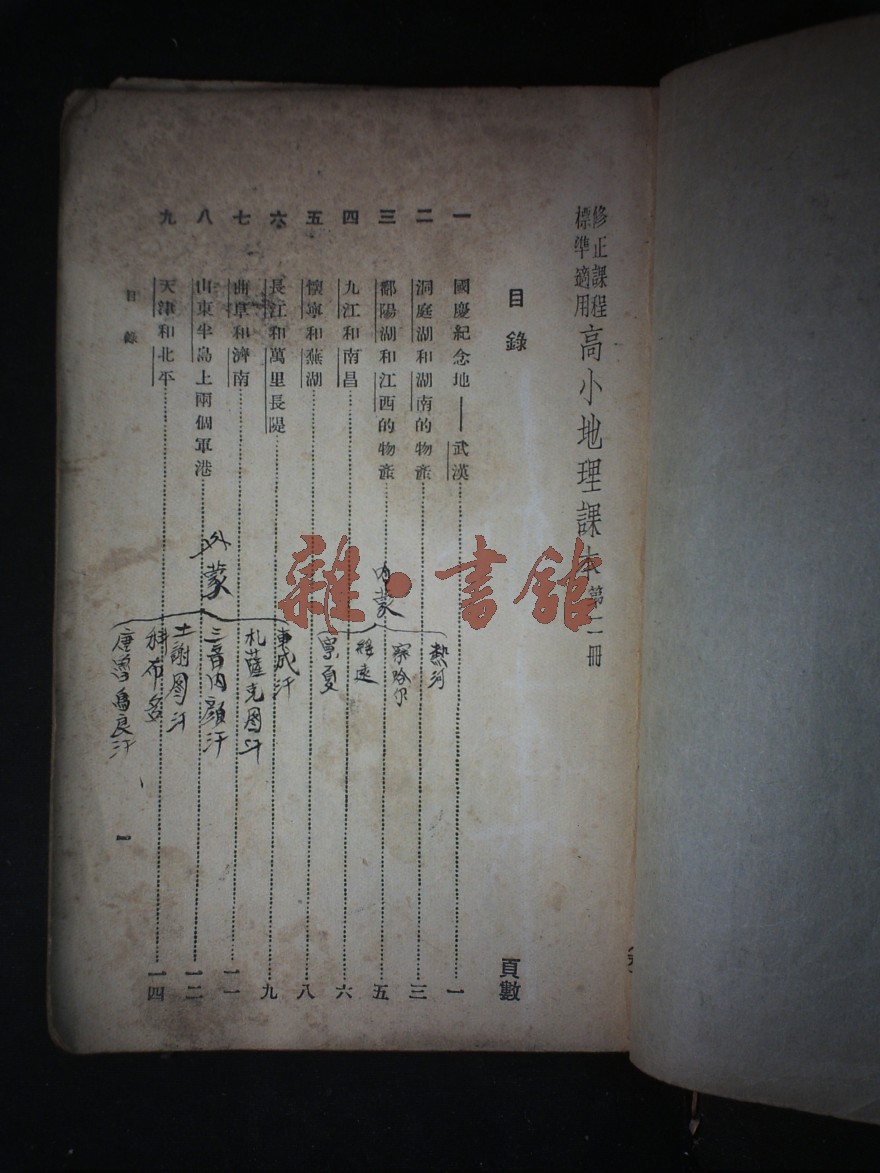 修正課程標準適用高小地理課本第二冊
目錄
頁數
一 國慶紀念地——武漢 一
二 洞庭湖和湖南的物產 三
三 鄱陽湖和江西的物產 五
四 九江和南昌 六
五 懷寧和蕪湖 八
六 長江和萬里長隄 九
七 曲阜和濟南 一一
八 山東半島上兩個軍港 一二
九 天津和北平 一四
目錄
一
內蒙
熱河
察哈尔
綏遠
寧夏
外蒙
車成汗
札薩克圖汗
三音內顔汗
土謝圖汗
科布多
唐魯烏良汗
雜·書舘